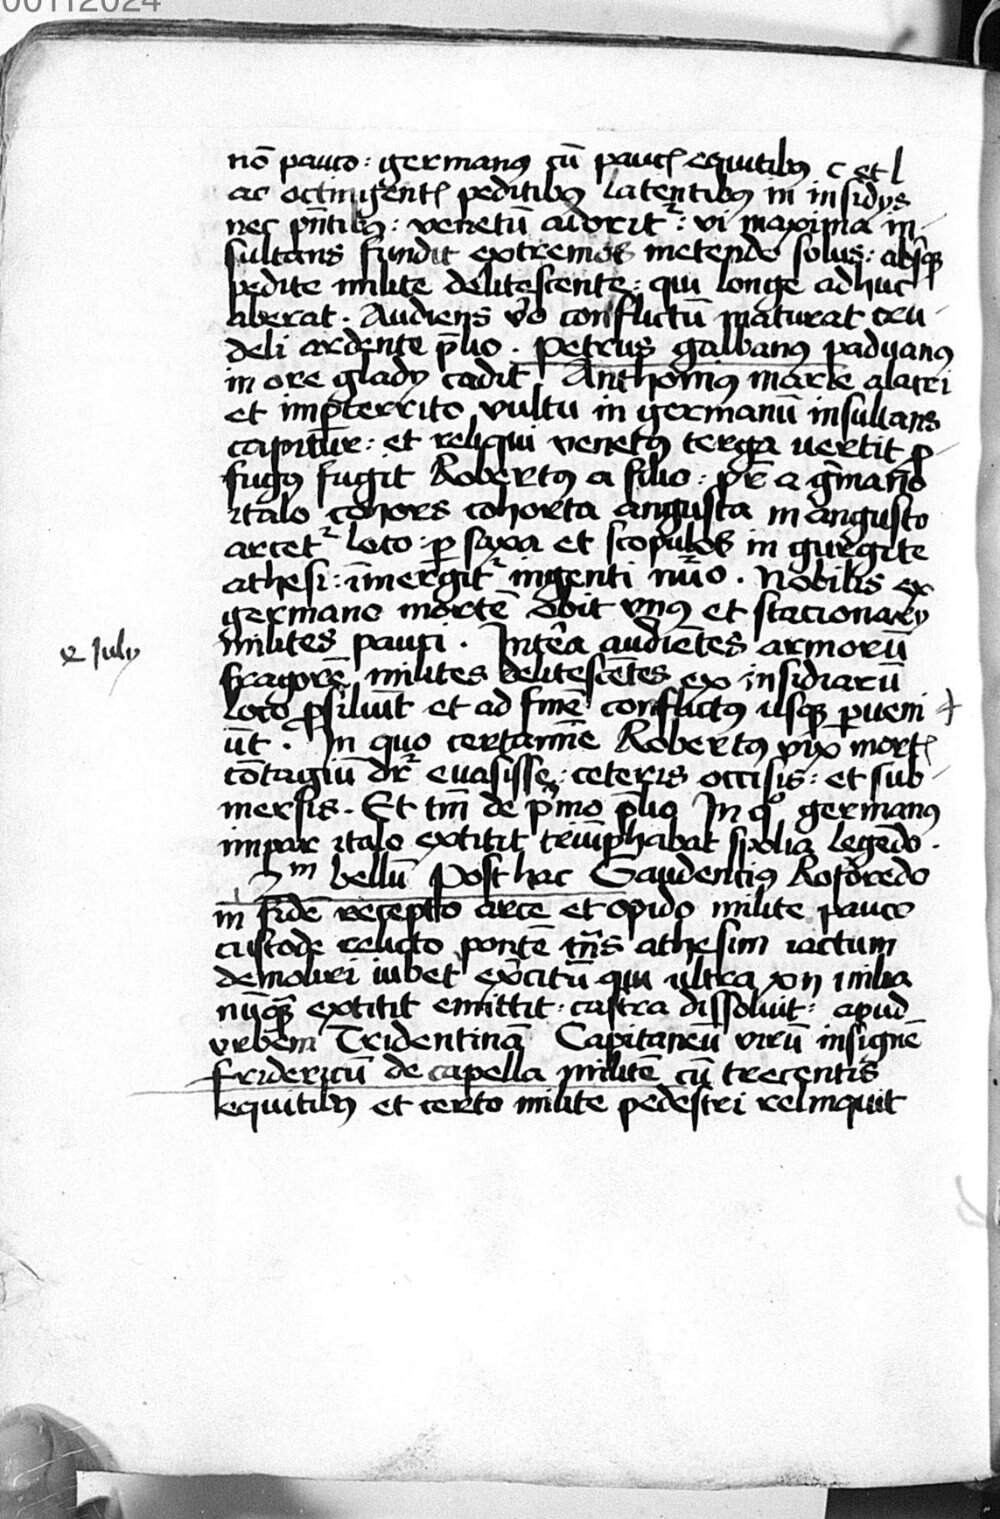 00112024
nō pauco : germanꝰ cū paucꝭ equitibꝰ c et l
ac octingentꝭ peditibꝰ latentibꝰ in insidijs
nec pn̄tibꝰ : venetū adorit᷑ : vi maxima in-
sultans fundit extremos metendo solus : absqꝫ
pedite milite delitescente : qui longe adhuc
aberat . Audiens v̄o conflictū maturat cru-
deli ardente p̄lio . petrus galbanꝰ paduanꝰ
in ore gladij cadit Anthoniꝰ marie alacri
et imꝑterrito vultu in germanū insultans
capitur : et reliqui venetꝰ terga uertit ꝓ-
fugꝰ fugit Robertꝰ a filio : pr̄ a g̃mano
italo cohors cohorta angusta in angusto
arcet᷑ loco : ꝑ saxa et scopulos in gurgite
athesi : īmergit᷑ ingenti nūo . Nobilis ex
germano mortē obit vnꝰ et stacionarij
milites pauci . Intēa audiētes armorū
x July
fragorē milites delitescētes ex insidiarū
loco ꝓsiliūt et ad finē conflictꝰ usqꝫ ꝑueni
ūt . In quo certamine Robertꝰ vix mortꝭ
cōtagiū dr̄ euasisse : ceteris occisis : et sub-
mersis . Et tm̄ de p̄mo p̄lio In qᵒ germanꝰ
impar italo extitit triūphabat spolia legēdo .
2m bellū Post hac Gaudenciꝰ Roforedo
in fidē recepto arce et opido milite pauco
custode relicto pontē tn̄s athesim iactum
demoliri iubet ex̄citū qui ultra xij milia
nūqꝫ extitit emittit : castra dissoluit : apud
vrbem Tridentinā Capitaneū virū insignē
fridericū de capella militē cū trecentis
equitibꝰ et certo milite pedestri relinquit